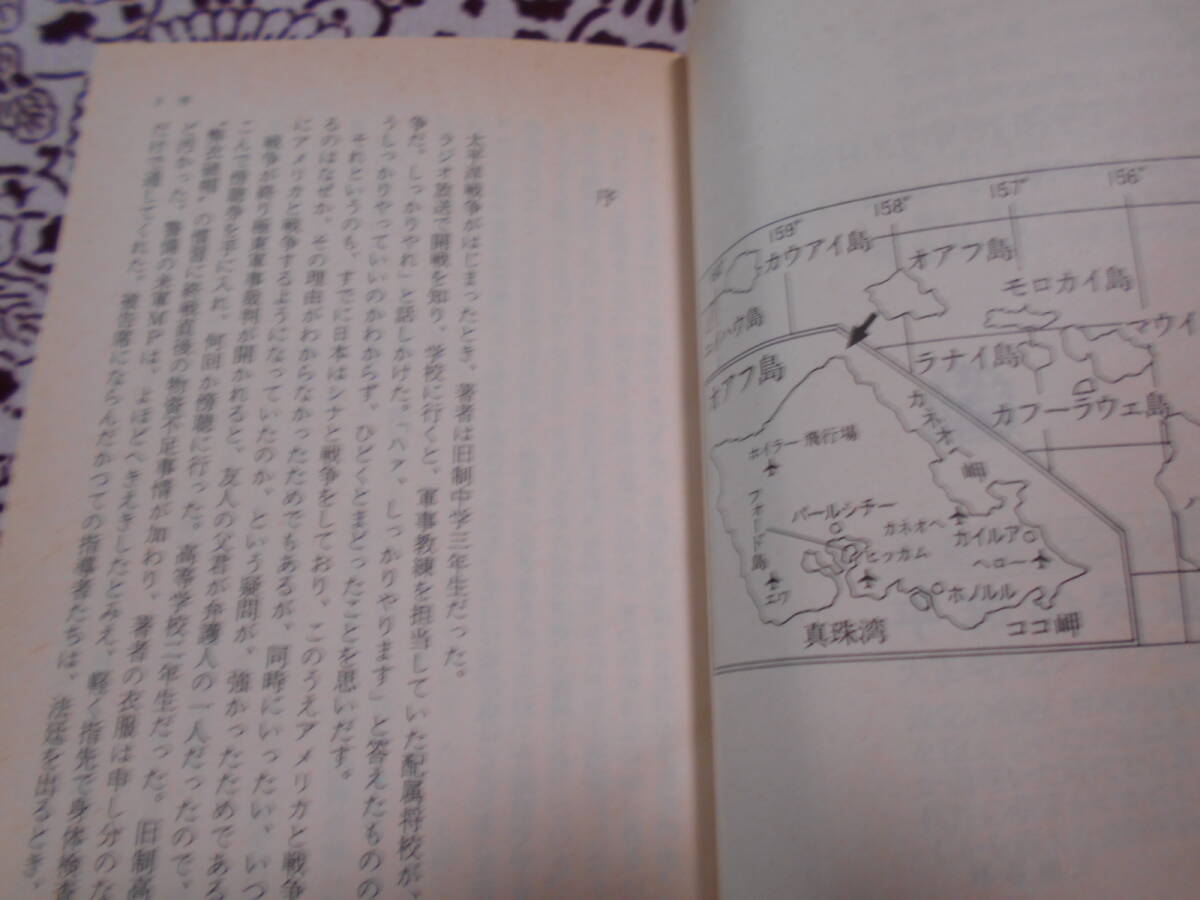 序
太平洋戦争がはじまったとき、著者は旧制中学三年生だった。
ラジオ放送で開戦を知り、学校に行くと、軍事教練を担当していた配属将校が、
争だ。しっかりやれ」と話しかけた。「ハァ、しっかりやります」と答えたものの
うしっかりやっていいのかわからず、ひどくとまどったことを思いだす。
それというのも、すでに日本はシナと戦争をしており、このうえアメリカと戦争
るのはなぜか、その理由がわからなかったためでもあるが、同時にいったい、いつ
にアメリカと戦争するようになっていたのか、という疑問が、強かったためである
戦争が終り極東軍事裁判が開かれると、友人の父君が弁護人の一人だったので、
こんで傍聴券を手に入れ、何回か傍聴に行った。高等学校二年生だった。旧制高
の慣習に終戦直後の物資不足事情が加わり、著者の衣服は申し分のな
ど汚かった。警備の米軍MPは、よほどへきえきしたとみえ、軽く指先で身体検査
だけで通してくれた。被告席にならんだかつての指導者たちは、法廷を出るとき、
159°
158°
157°
156°
カウアイ島
オアフ島
モロカイ島
ニイハウ島
ラナイ島
マウイ
カフーラウェ島
ハ
オアフ島
カネオヘ岬
ホイラー飛行場
フォード島
パールシチー
カネオヘ
カイルア
ヒッカム
ベロー
エワ
ホノルル
真珠湾
ココ岬